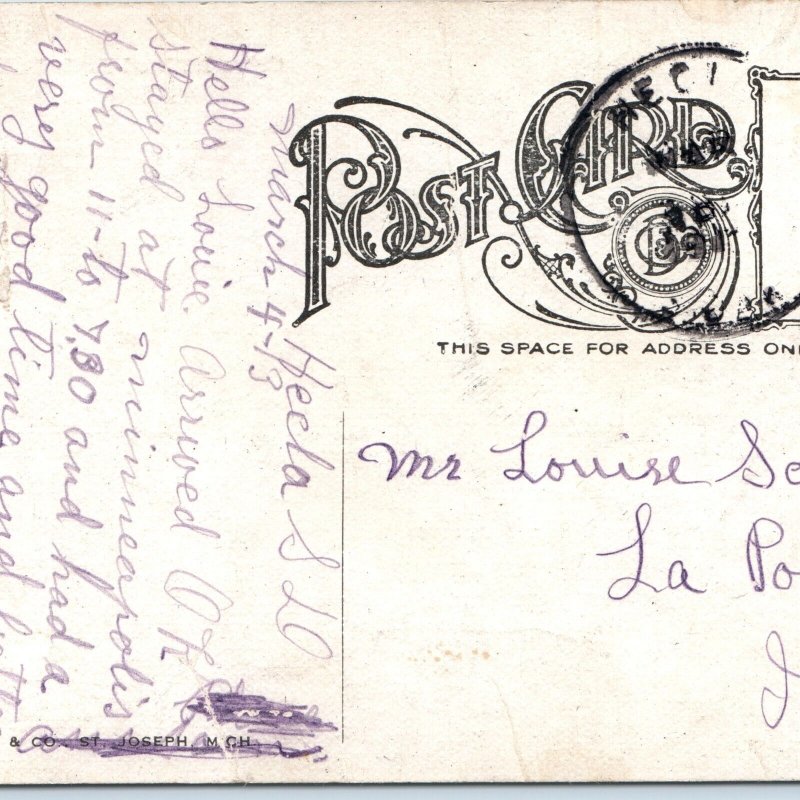 POST CARD
HECL
MAR
THIS SPACE FOR ADDRESS ONL
Hecla S D
March 4-13
Hello Louie Arrived O K
stayed at minneapolis
from 11- to 7,30 and had a
very good time and
Mr Louise Sc
La Po
& CO., ST. JOSEPH, MICH.